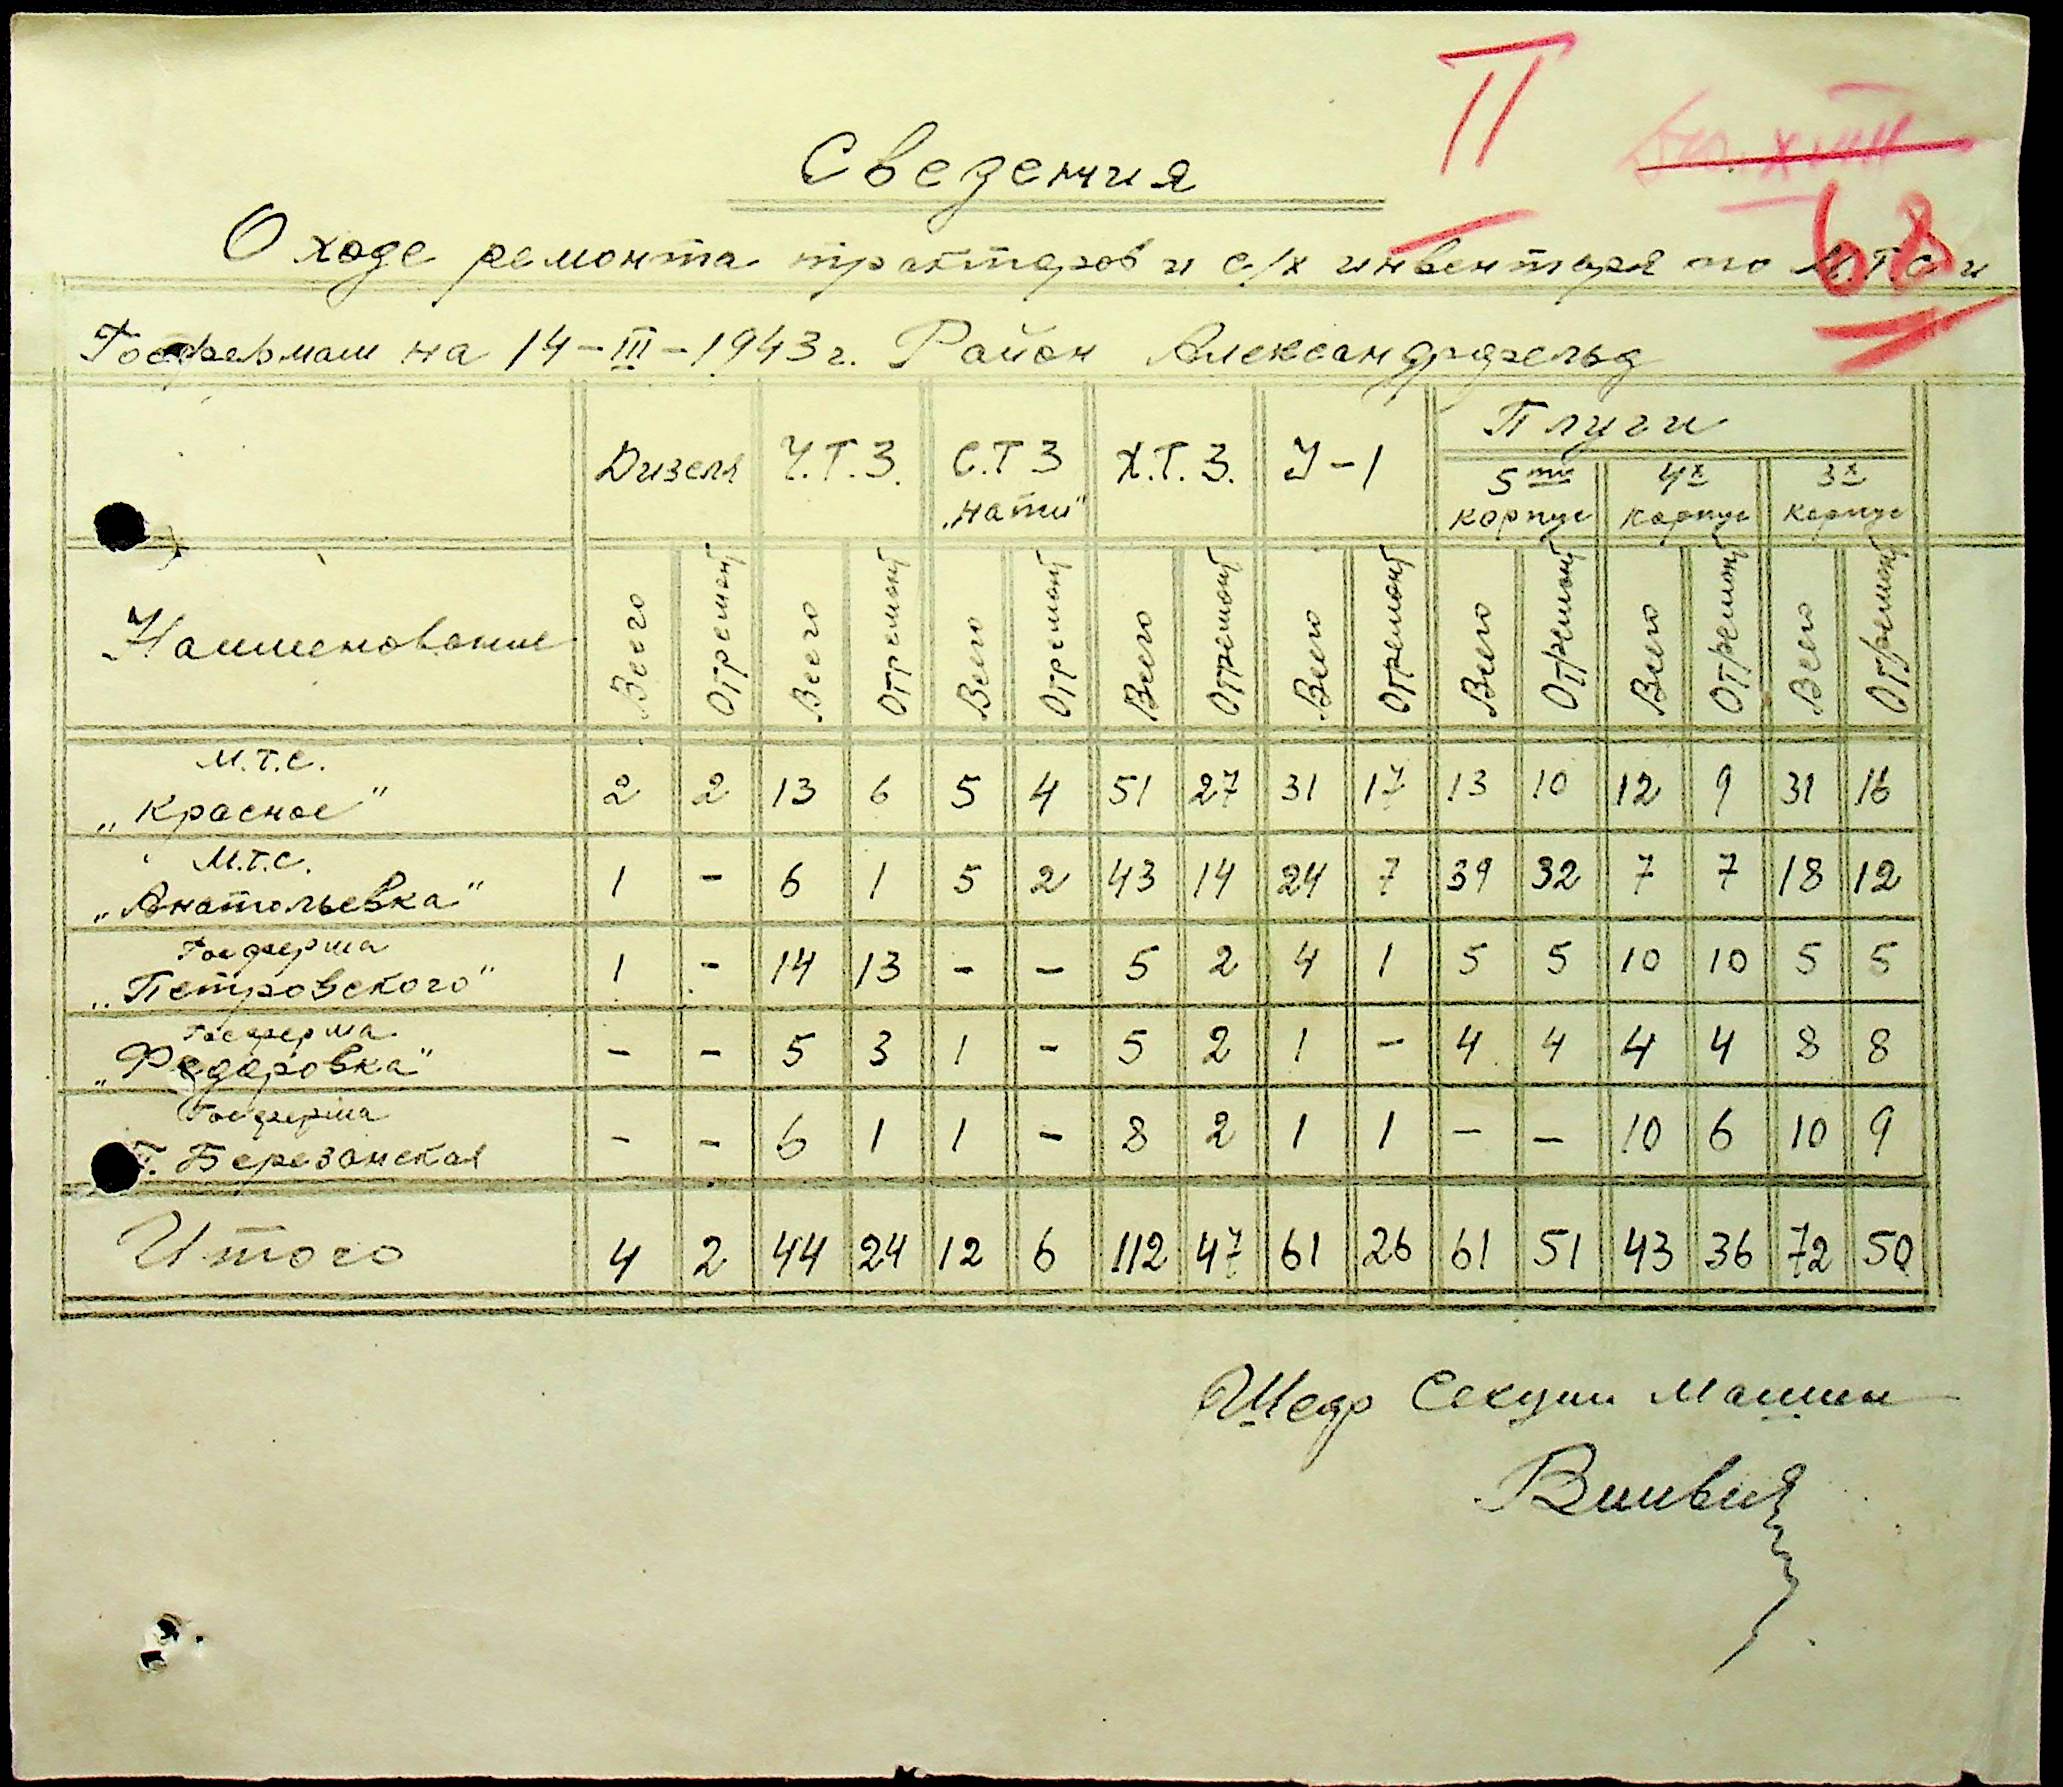 II
68
Сведения
О ходе ремонта тракторов и с/х инвентаря по МТС и
Госфермам на 14-III-1943 г. Район Александрфельд
Наименование | Дизеля | Ч.Т.З. | С.Т.З „нати" | Х.Т.З. | У-1 | Плуги
5ти корпус | 4х корпус | 3х корпус
Всего | Отремонт | Всего | Отремонт | Всего | Отремонт | Всего | Отремонт | Всего | Отремонт | Всего | Отремонт | Всего | Отремонт | Всего | Отремонт
М.Т.С. „Красное" | 2 | 2 | 13 | 6 | 5 | 4 | 51 | 27 | 31 | 17 | 13 | 10 | 12 | 9 | 31 | 16
М.Т.С. „Анатольевка" | 1 | - | 6 | 1 | 5 | 2 | 43 | 14 | 24 | 7 | 39 | 32 | 7 | 7 | 18 | 12
Госферма „Петровского" | 1 | - | 14 | 13 | - | - | 5 | 2 | 4 | 1 | 5 | 5 | 10 | 10 | 5 | 5
Госферма „Федоровка" | - | - | 5 | 3 | 1 | - | 5 | 2 | 1 | - | 4 | 4 | 4 | 4 | 8 | 8
Госферма Т. Березанская | - | - | 6 | 1 | 1 | - | 8 | 2 | 1 | 1 | - | - | 10 | 6 | 10 | 9
Итого | 4 | 2 | 44 | 24 | 12 | 6 | 112 | 47 | 61 | 26 | 61 | 51 | 43 | 36 | 72 | 50
Шеф Секции Машин